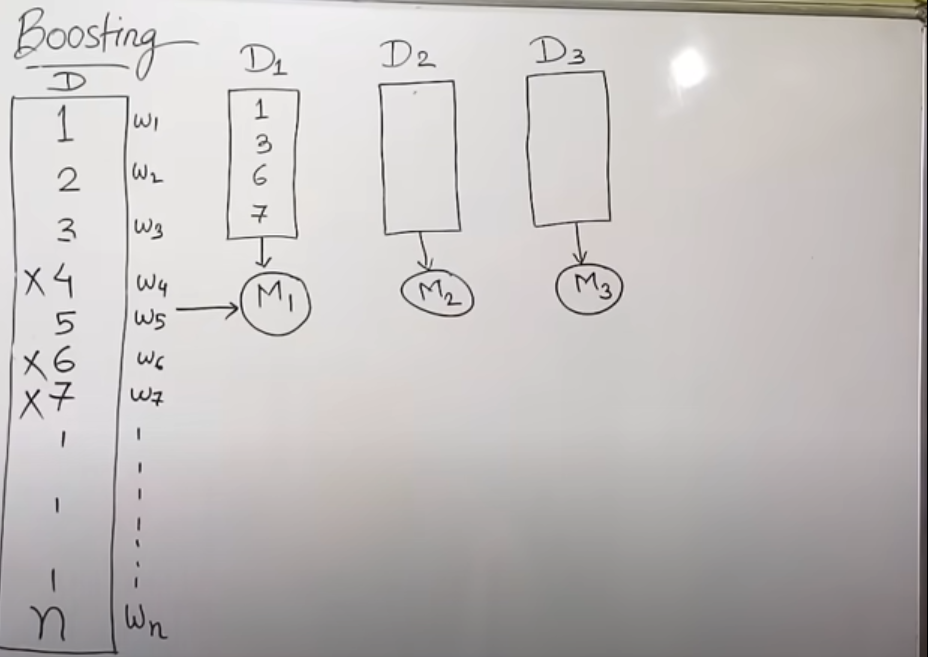 Boosting
D
1 w1
2 w2
3 w3
X 4 w4
5 w5
X 6 w6
X 7 w7
n wn
D1
1
3
6
7
M1
D2
M2
D3
M3